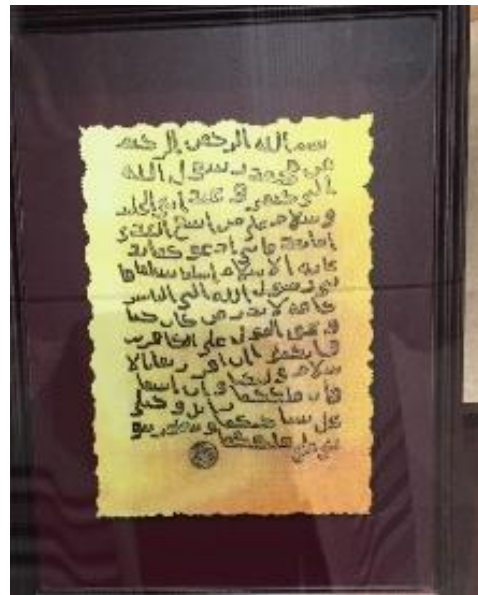 بسم الله الرحمن الرحيم
من محمد رسول الله
الى جيفر و عبد ابنى الجلند
و سلام على من اتبع الهدى
اما بعد فانى ادعوكما بد
عاية الاسلام اسلما تسلما فا
نى رسول الله الى الناس
كافة لاندر من كان حيا
و يحق القول على الكافرين
ان اقررتما بالا
سلام وليتكما
وان ابيتما
زايل و خيلى
تحل بساحتكما وتظهر نبو
تى على ملككما